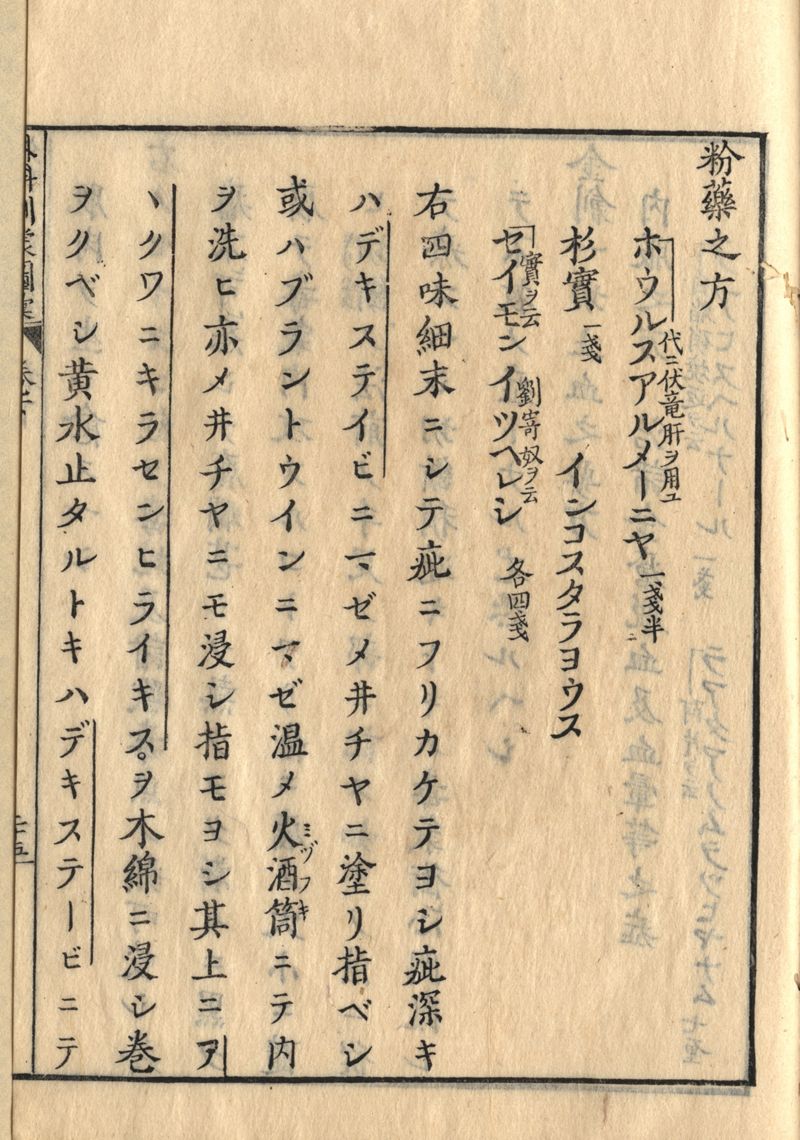 粉藥之方
ホウルスアルメーニヤ 代ニ伏竜肝ヲ用ユ 一戔半
杉實 一戔 インコスタラヨウス
セイモンイツヘレシ 實ヲ云 劉寄奴ヲ云 各四戔
右四味細末ニシテ疵ニフリカケテヨシ疵深キ
ハデキステイビニマゼメ井チヤニ塗リ指ベシ
或ハブラントウインニマゼ温メ火酒筒ミヅフキニテ内
ヲ洗ヒ亦メ井チヤニモ浸シ指モヨシ其上ニア
ヽクワニキラセンヒライキス。ヲ木綿ニ浸シ巻
ヲクベシ黄水止タルトキハデキステービニテ